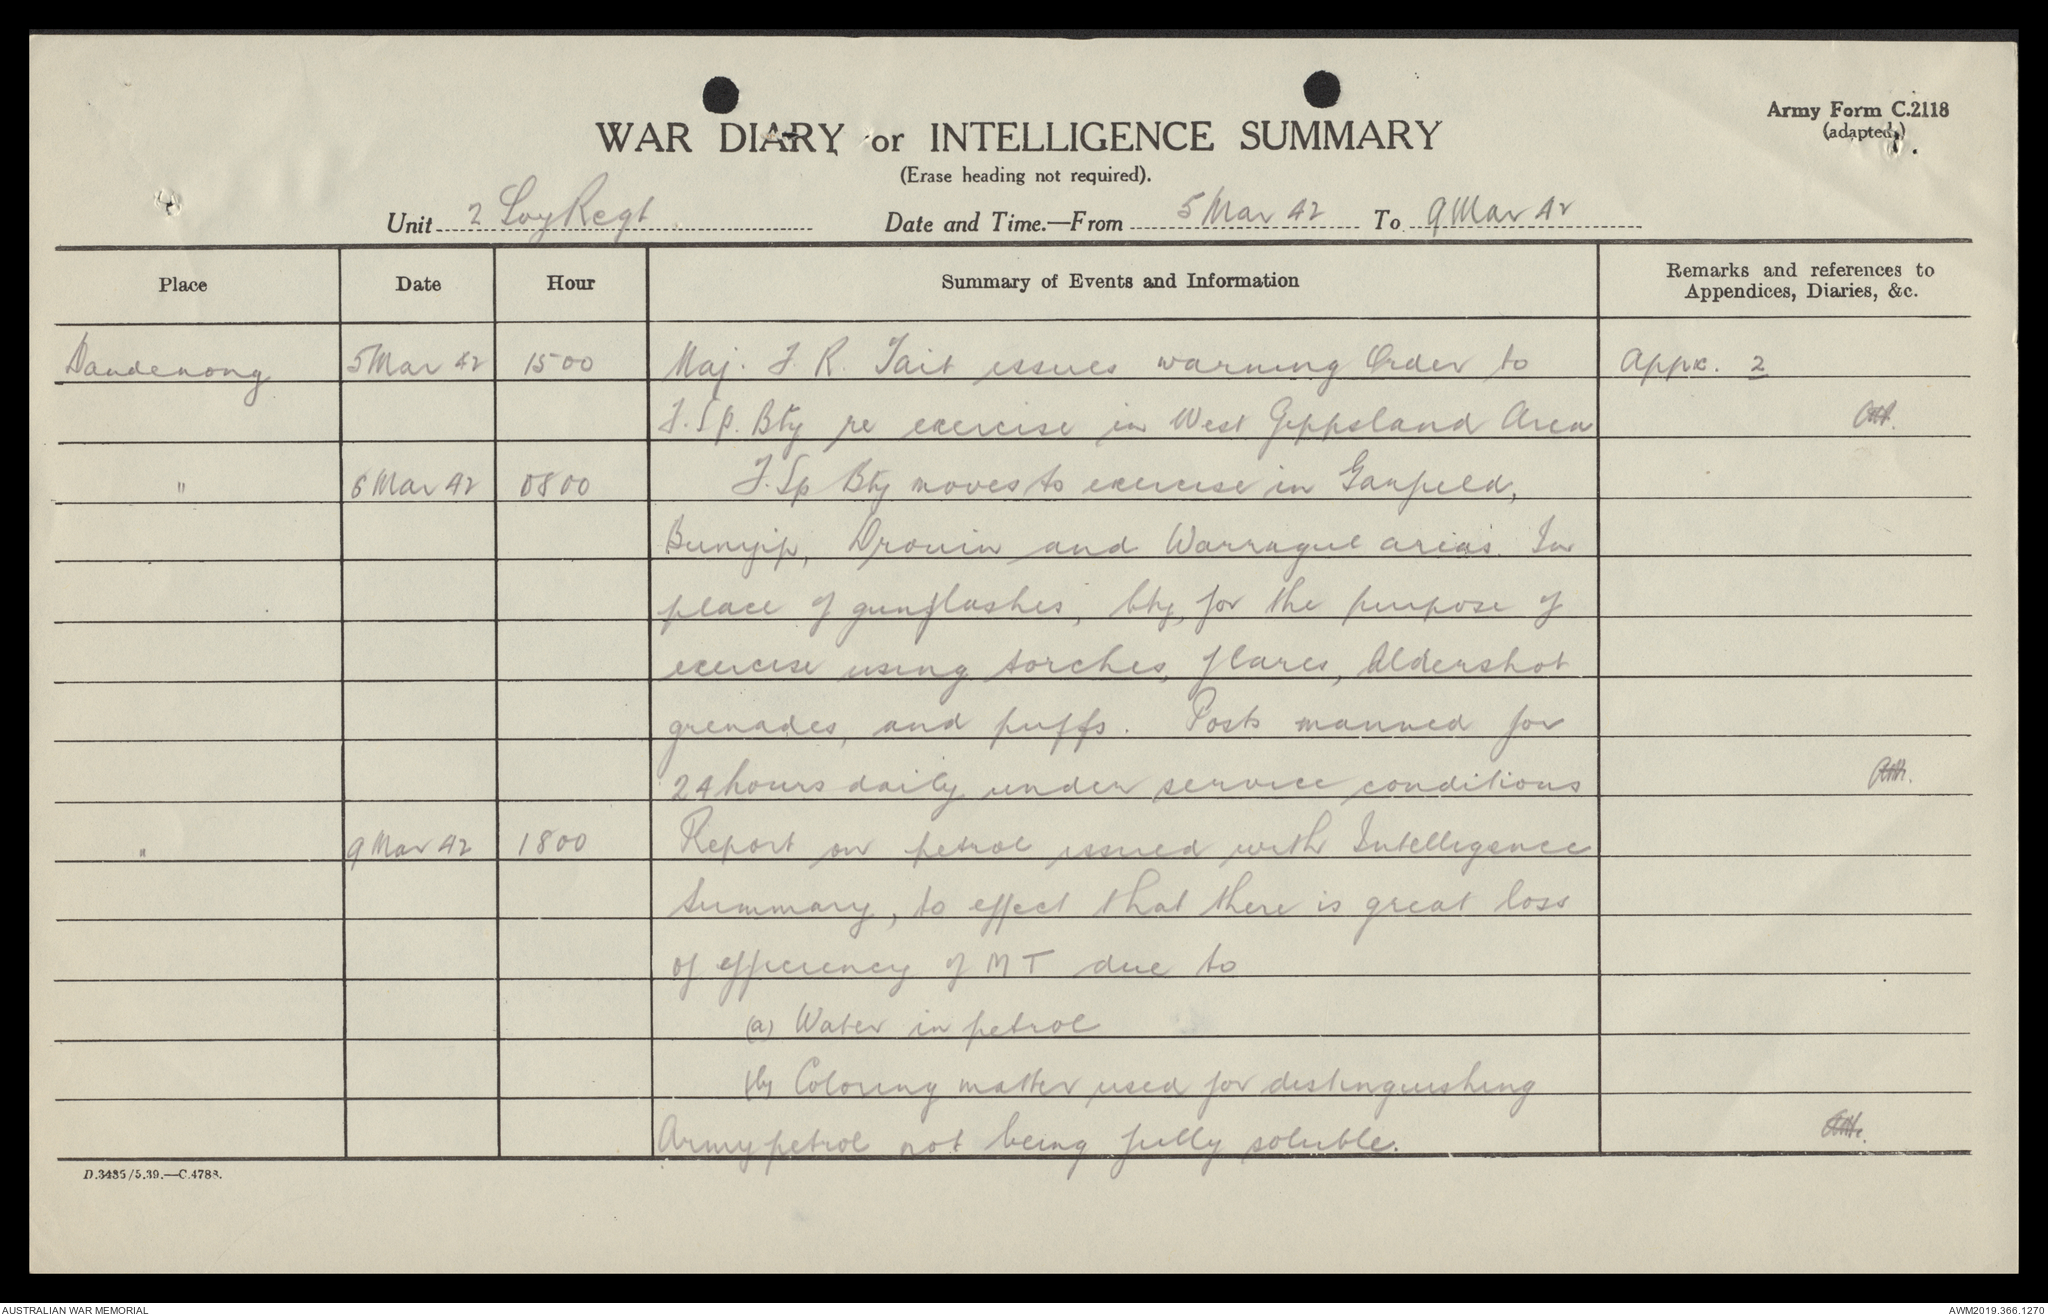 Army Form C.2118
(adapted)
WAR DIARY or INTELLIGENCE SUMMARY
(Erase heading not required).
Unit 2 Svy Regt Date and Time.—From 5 Mar 42 To 9 Mar 42
Place Date Hour Summary of Events and Information Remarks and references to Appendices, Diaries, &c.
Dandenong 5 Mar 42 1500 Maj. F. R. Tait issues warning Order to Appx. 2
F. Sp. Bty re exercise in West Gippsland Area
" 6 Mar 42 0800 F. Sp Bty moves to exercise in Garfield,
Bunyip, Drouin and Warragul areas. In
place of gunflashes, bty, for the purpose of
exercise using torches, flares, Aldershot
grenades, and puffs. Posts manned for
24 hours daily under service conditions
" 9 Mar 42 1800 Report on petrol issued with Intelligence
Summary, to effect that there is great loss
of efficiency of MT due to
(a) Water in petrol
(b) Coloring matter used for distinguishing
Army petrol not being fully soluble.
D.3485/5.39.—C.4788.
AUSTRALIAN WAR MEMORIAL AWM2019.366.1270